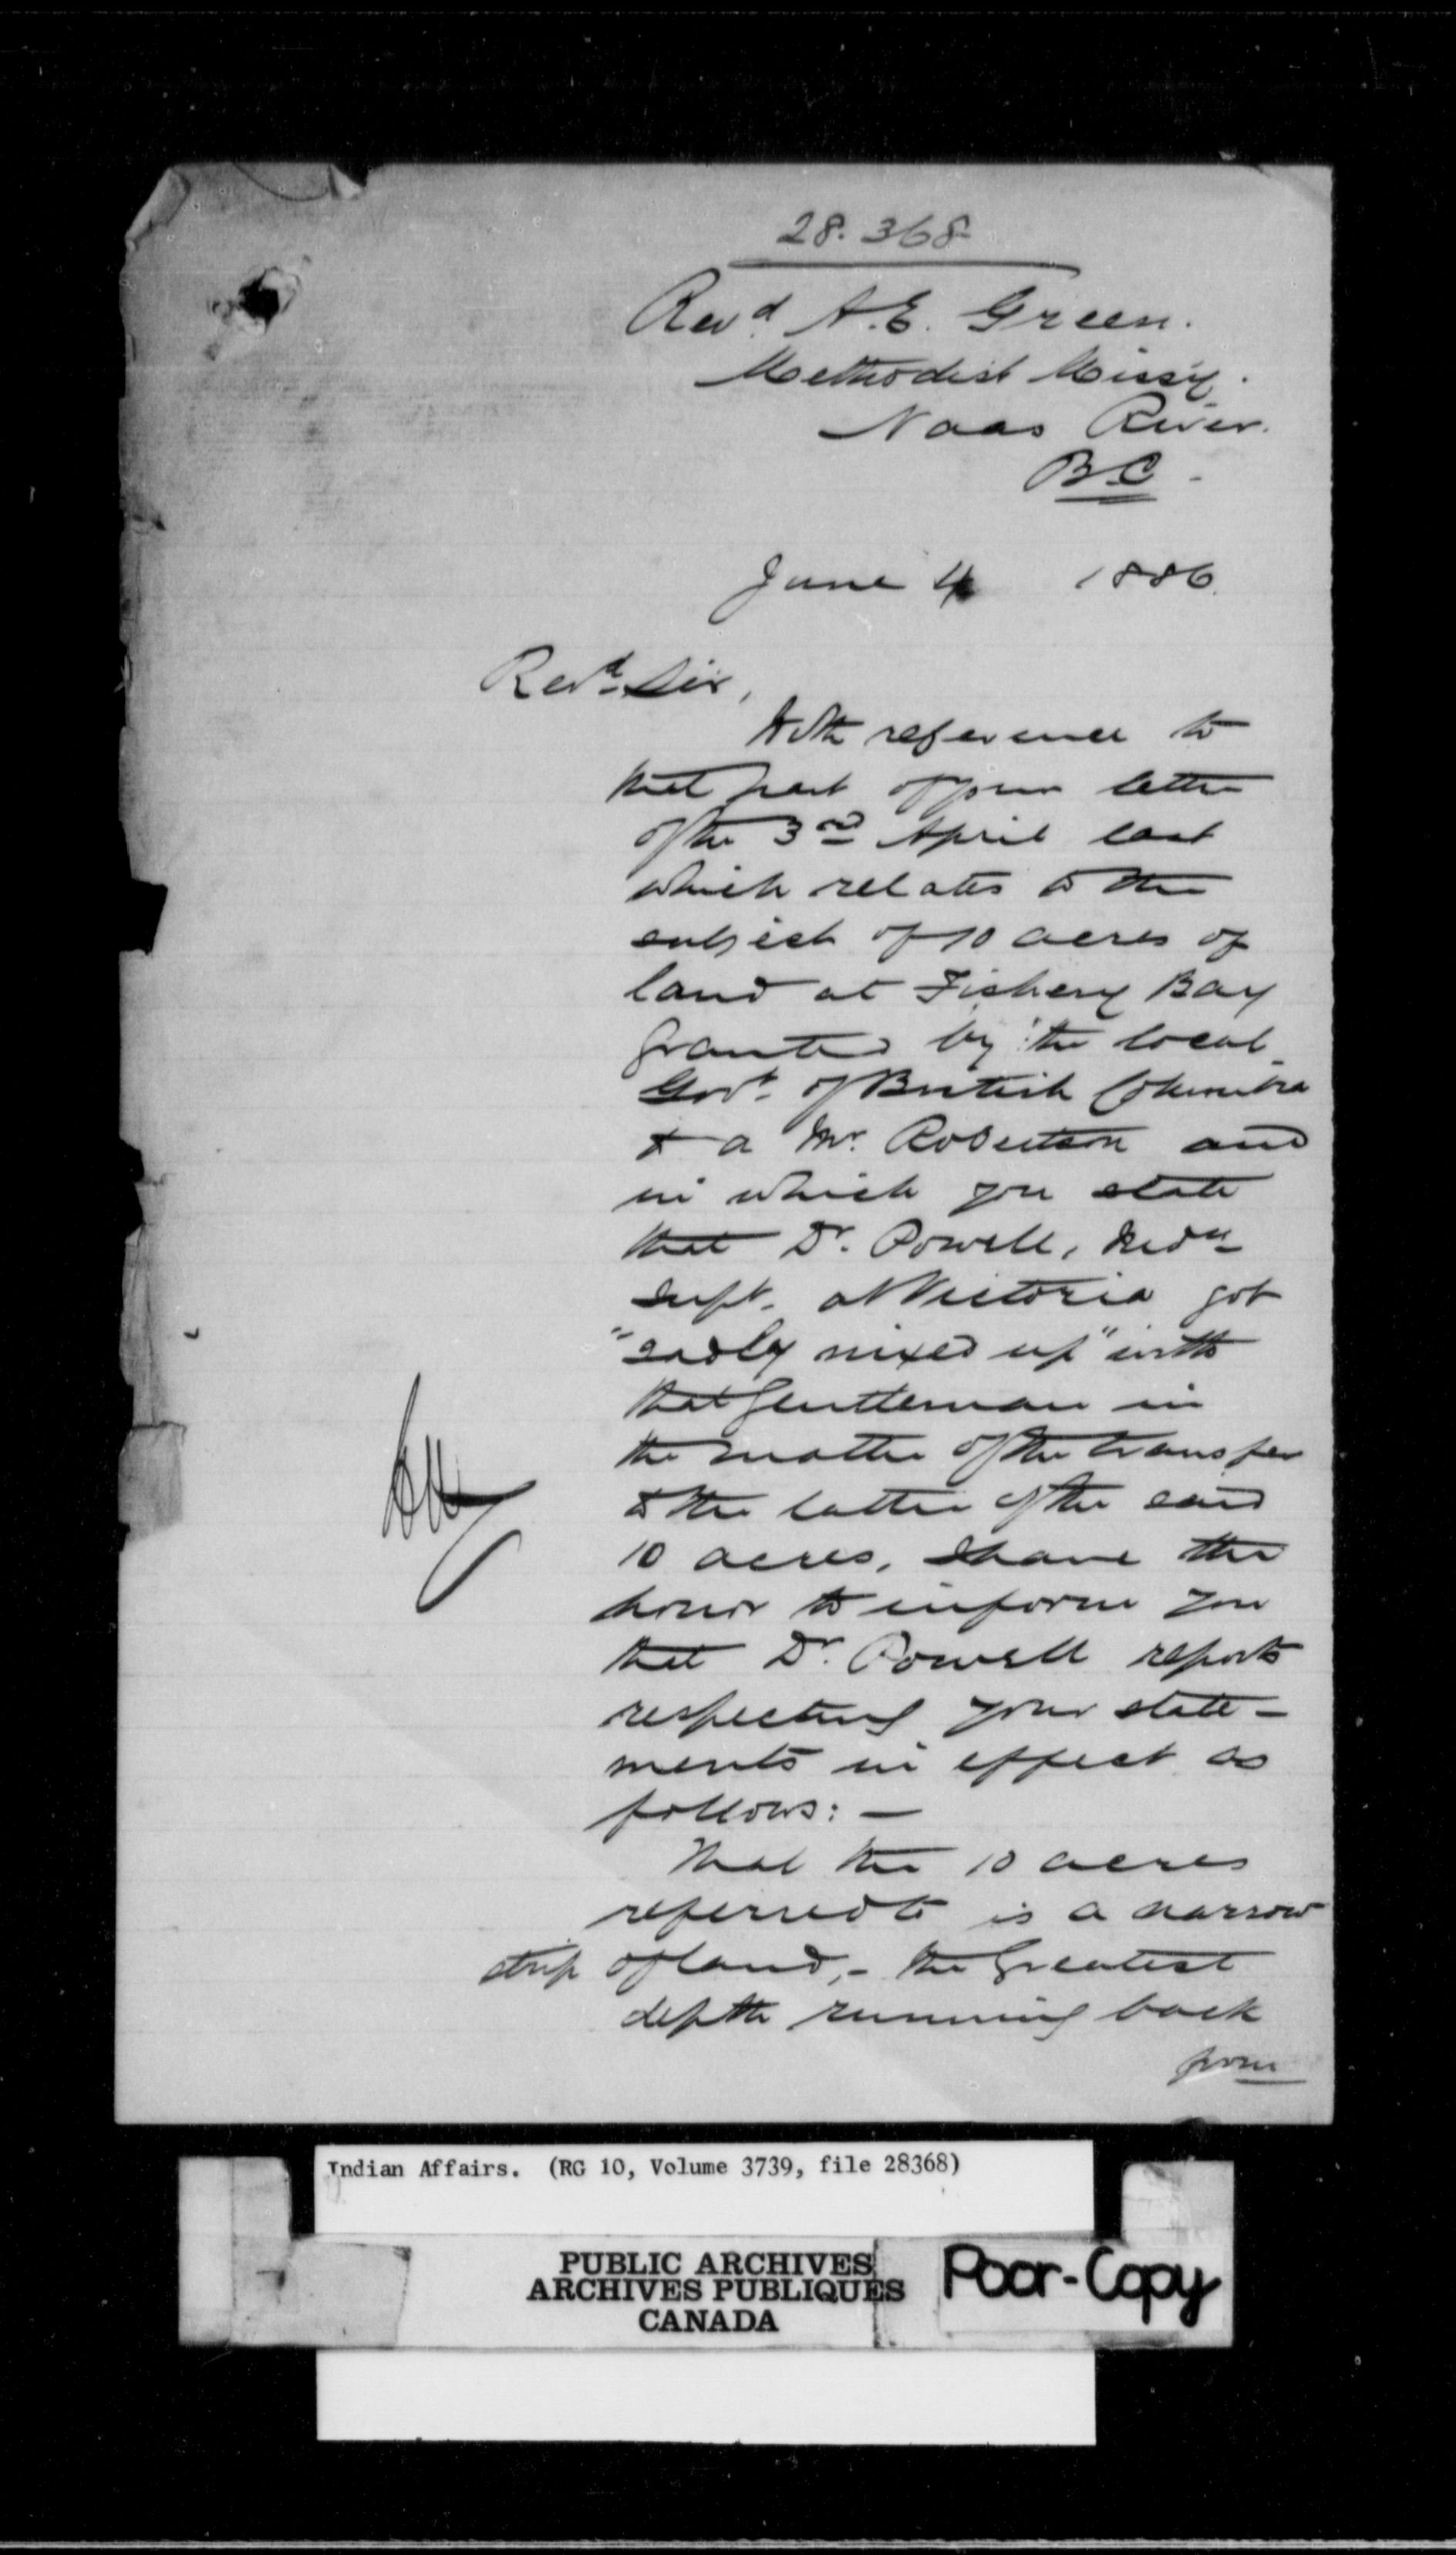 28.368
Revd. A.E. Green.
Methodist Missy.
Naas River.
B.C.
June 4 1886.
Revd. Sir,
With reference to
that part of your letter
of the 3rd April last
which relates to the
subject of 10 acres of
land at Fishery Bay
granted by the local
Govt. of British Columbia
to a Mr. Robertson and
in which you state
that Dr. Powell, Indn
Supt. at Victoria got
"sadly mixed up" with
that gentleman in
the matter of the transfer
to the latter of the said
10 acres, I have the
honor to inform you
that Dr. Powell reports
respecting your state-
ments in effect as
follows: —
That the 10 acres
referred to is a narrow
strip of land, - the greatest
depth running back
from
Indian Affairs. (RG 10, Volume 3739, file 28368)
PUBLIC ARCHIVES
ARCHIVES PUBLIQUES
CANADA
Poor-Copy